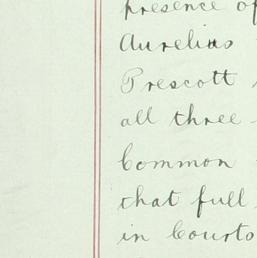 presence of
Aurelius
Prescott
all three
Common
that full
in Courts